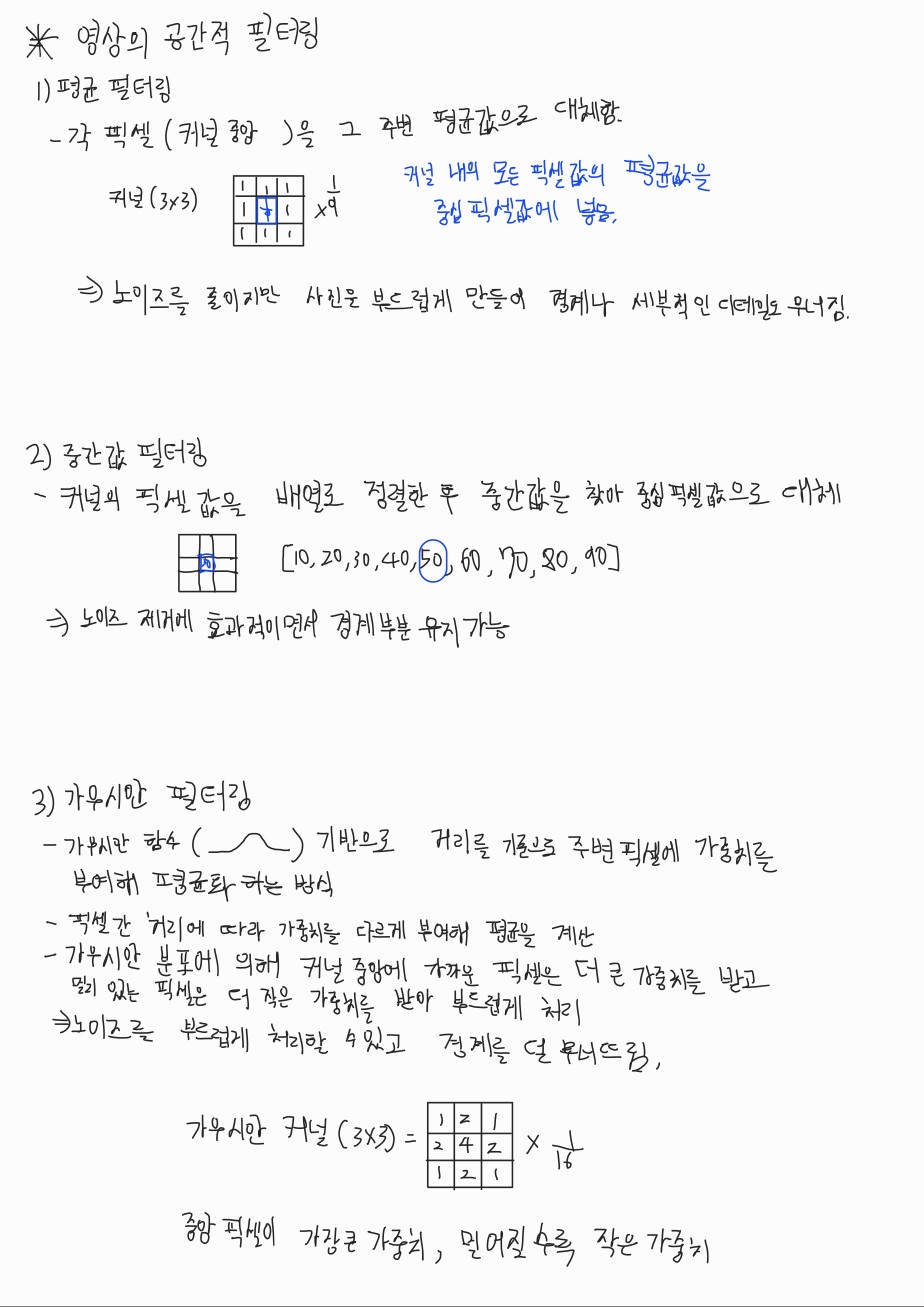 * 영상의 공간적 필터링
1) 평균 필터링
- 각 픽셀(커널 중앙 )을 그 주변 평균값으로 대체함.
커널 (3x3)
1 1 1
1 1
1 1 1
x 1/9
커널 내의 모든 픽셀값의 평균값을
중심 픽셀값에 넣음.
⇒ 노이즈를 줄이지만 사진은 부드럽게 만들어 경계나 세부적인 디테일도 무너짐.
2) 중간값 필터링
- 커널의 픽셀 값을 배열로 정렬한 후 중간값을 찾아 중심픽셀값으로 대체
50
[10, 20, 30, 40, 50, 60, 70, 80, 90]
⇒ 노이즈 제거에 효과적이면서 경계부분 유지가능
3) 가우시안 필터링
- 가우시안 함수 ( ) 기반으로 거리를 기준으로 주변 픽셀에 가중치를
부여해 평균화 하는 방식
- 픽셀간 거리에 따라 가중치를 다르게 부여해 평균을 계산
- 가우시안 분포에 의해 커널 중앙에 가까운 픽셀은 더 큰 가중치를 받고
멀리 있는 픽셀은 더 작은 가중치를 받아 부드럽게 처리
⇒ 노이즈를 부드럽게 처리할 수 있고 경계를 덜 무너뜨림,
가우시안 커널 (3x3) =
1 2 1
2 4 2
1 2 1
x 1/16
중앙 픽셀이 가장큰 가중치, 멀어질수록 작은 가중치